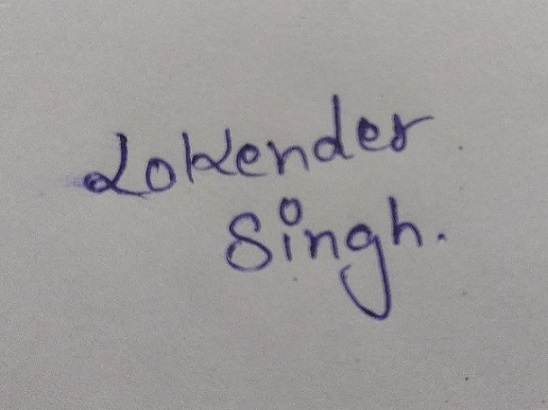 Lokender
Singh.